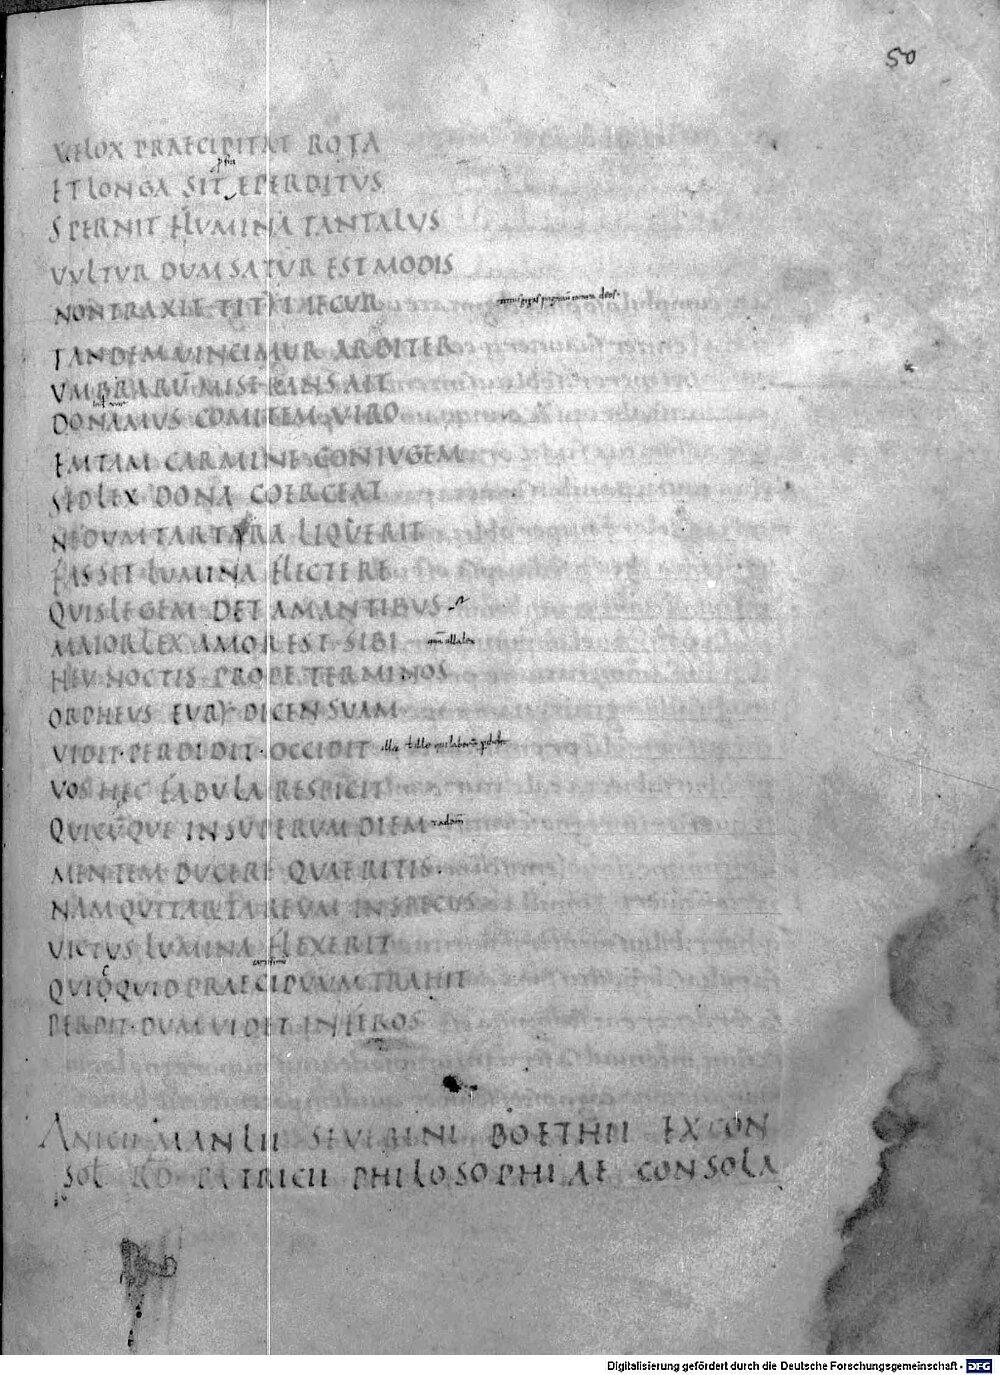 50
VELOX PRAECIPITAT ROTA
ET LONGA SIT EPERDITUS
SPERNIT FLUMINA TANTALUS
VULTUR DUM SATUR EST MODIS
NON TRAXIT TITYI IECUR
TANDEM VINCIMUR ARBITER
UMBRARŪ MISERANS AIT
DONAMUS COMITEM VIRO
EMTAM CARMINE CONIUGEM
SED LEX DONA COERCEAT
NE DUM TARTARA LIQUERIT
FAS SIT LUMINA FLECTERE
QUIS LEGEM DET AMANTIBUS
MAIOR LEX AMOR EST SIBI
HEU NOCTIS PROPE TERMINOS
ORPHEUS EURYDICEN SUAM
VIDIT · PERDIDIT · OCCIDIT
VOS HEC FABULA RESPICIT
QUICŪQUE IN SUPERUM DIEM
MENTEM DUCERE QUAERITIS.
NAM QUI TARTAREUM IN SPECUS
VICTUS LUMINA FLEXERIT
QUIDQUID PRAECIPUUM TRAHIT
PERDIT · DUM VIDET INFEROS
ANICII MANLII SEVERINI BOETHII EX CON
SOL ORD PATRICII PHILOSOPHIAE CONSOLA
Digitalisierung gefördert durch die Deutsche Forschungsgemeinschaft - DFG